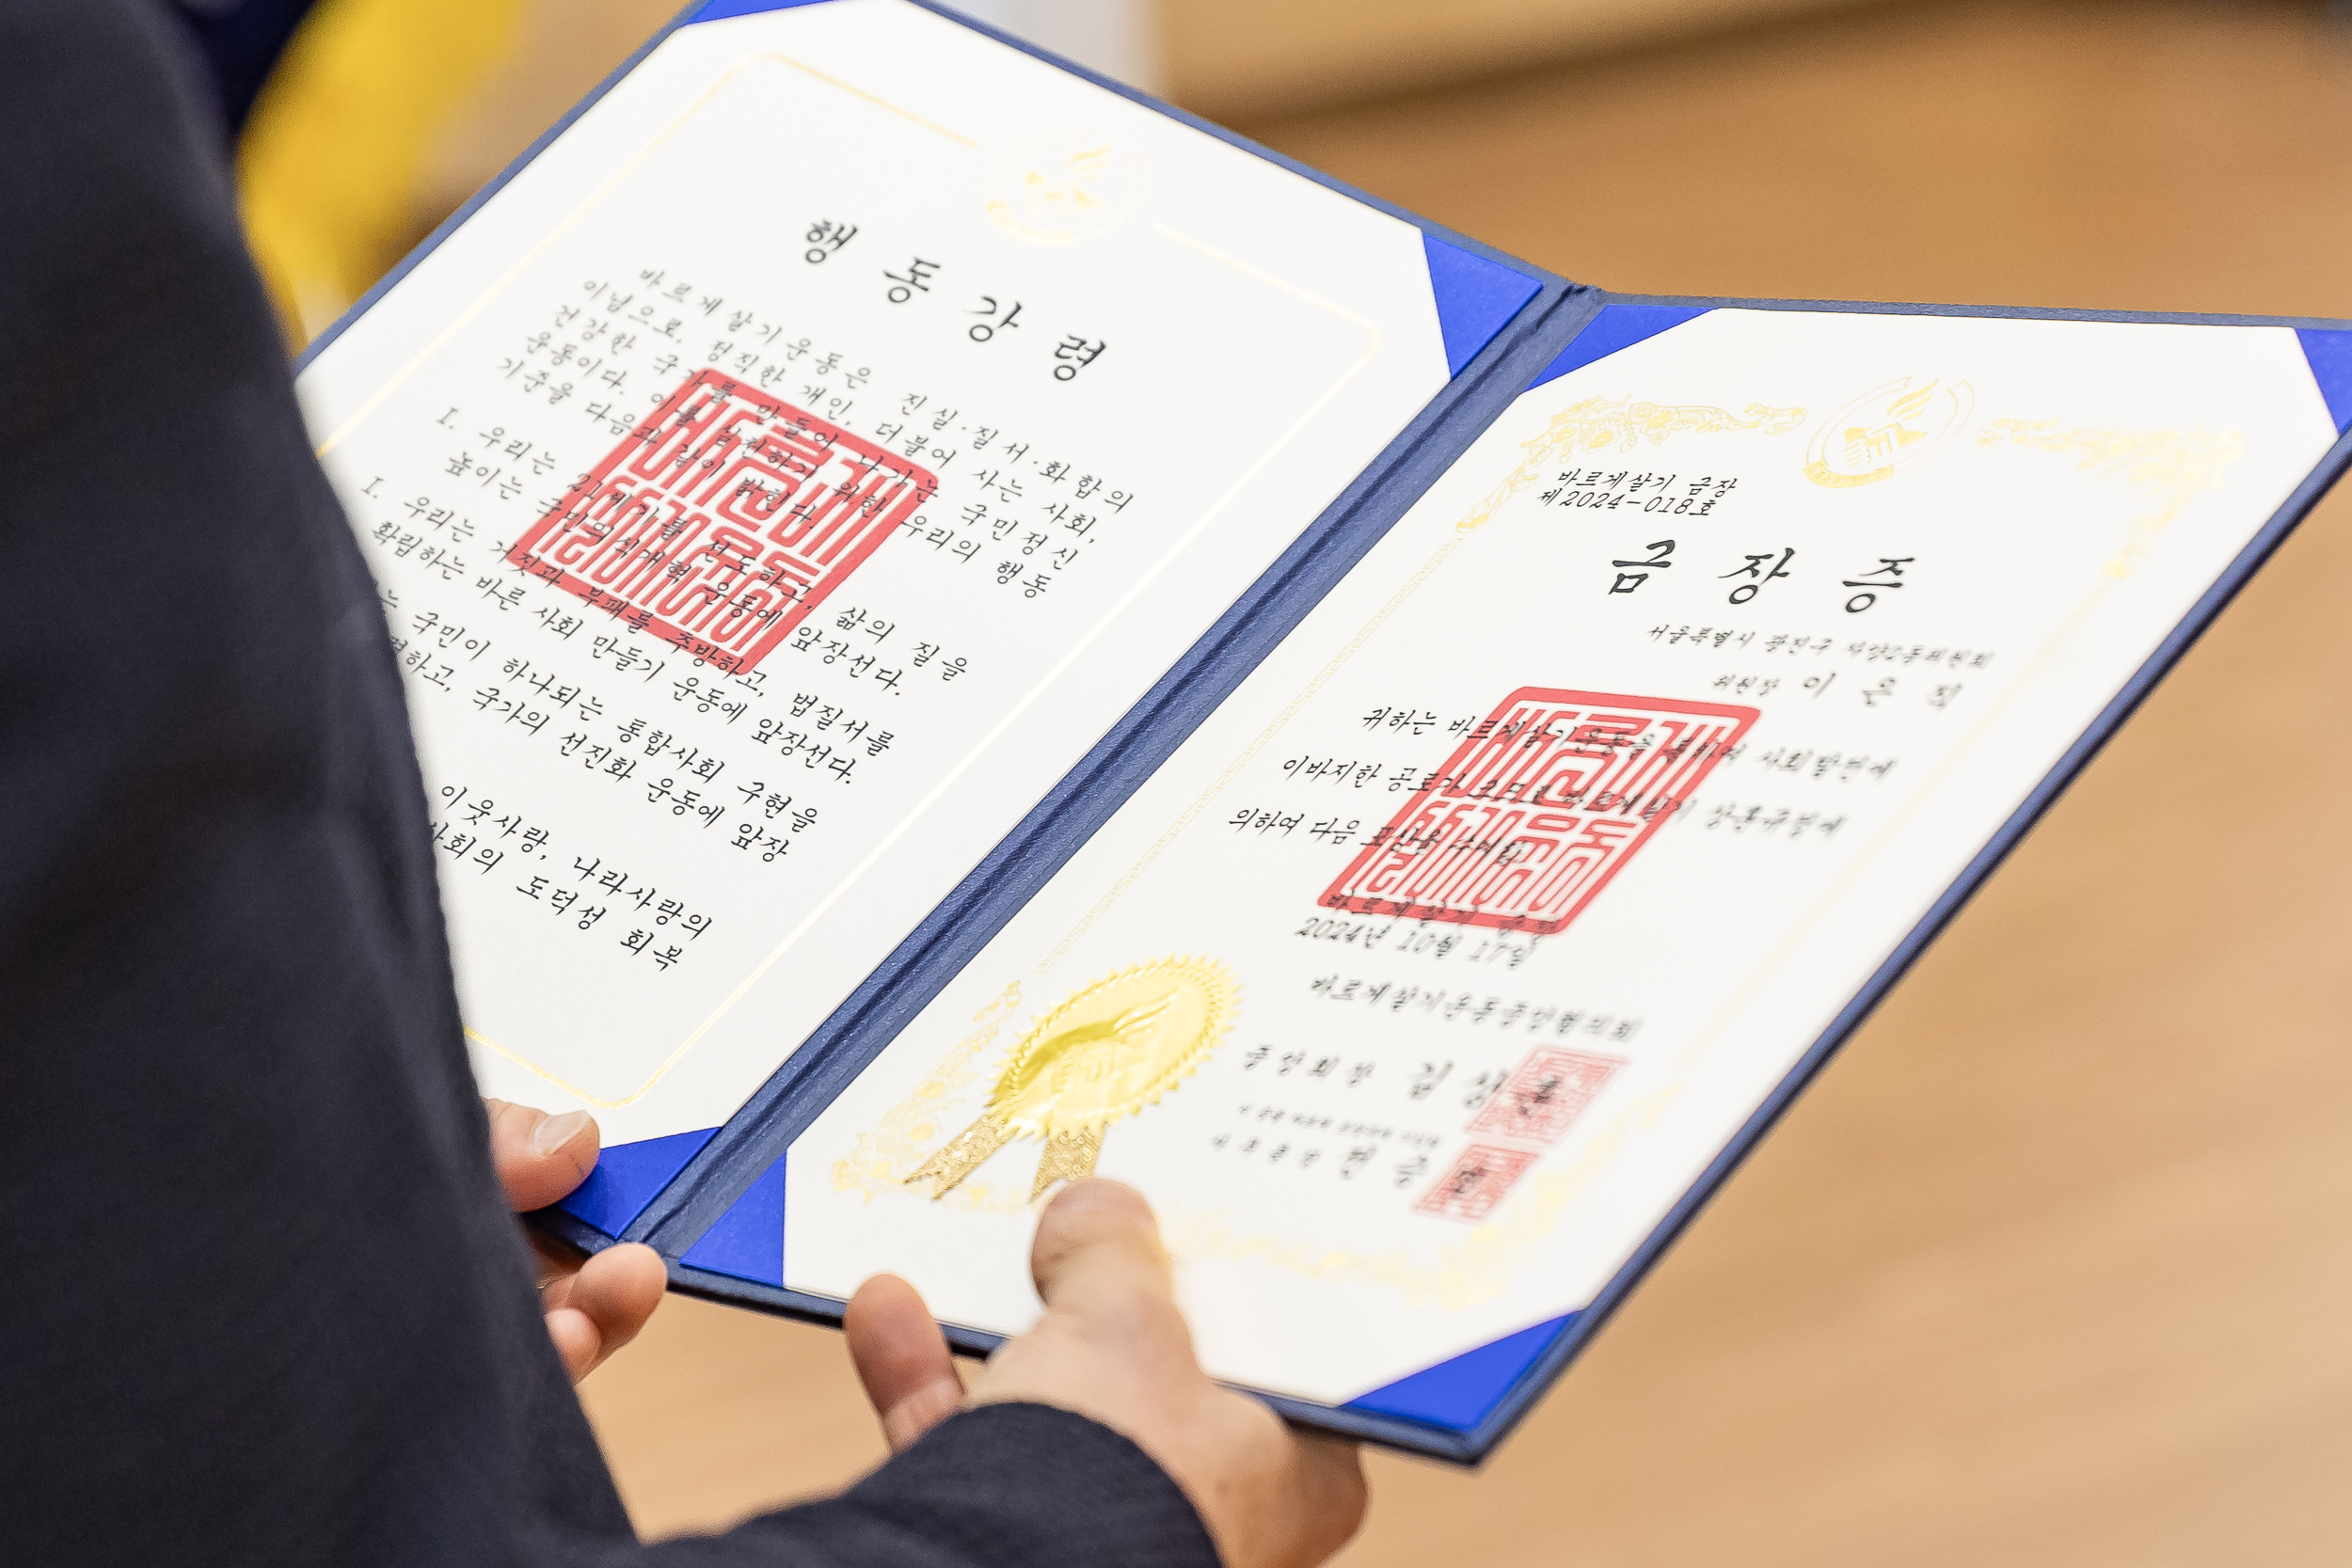 행동강령
바르게살기운동은 진실·질서·화합의
이념으로, 정직한 개인, 더불어 사는 사회,
건강한 국가를 만들어 나가는 국민정신
운동이다. 이를 실천하기 위한 우리의 행동
기준을 다음과 같이 밝힌다.
I. 우리는 21세기를 선도하고, 삶의 질을
높이는 국민의식개혁 운동에 앞장선다.
I. 우리는 거짓과 부패를 추방하고, 법질서를
확립하는 바른 사회 만들기 운동에 앞장선다.
는 국민이 하나되는 통합사회 구현을
하고, 국가의 선진화 운동에 앞장
이웃사랑, 나라사랑의
사회의 도덕성 회복
바르게살기 금장
제2024-018호
금장증
서울특별시 광진구 자양2동위원회
위원장 이 은
귀하는 바르게살기운동을 통하여 사회발전에
이바지한 공로가 크므로 바르게살기 상훈규정에
의하여 다음 포상을 수여함
바르게살기 금장
2024년 10월 17일
바르게살기운동중앙협의회
중앙회장 김상훈
사무총장